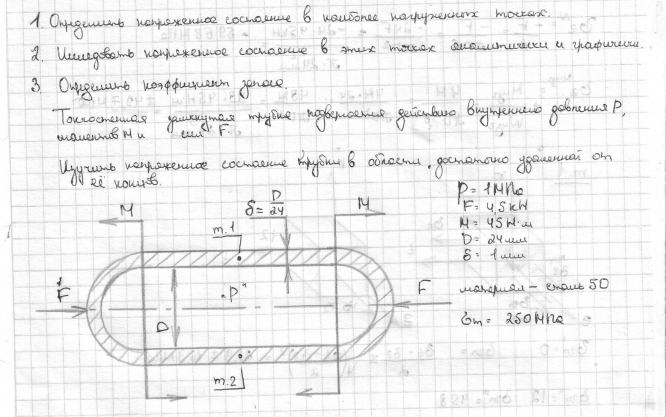 1. Определить напряженное состояние в наиболее нагруженных точках.
2. Исследовать напряженное состояние в этих точках аналитически и графически.
3 Определить коэффициент запаса.
Тонкостенная замкнутая трубка подвергается действию внутреннего давления P,
моментов M и сил F.
Изучить напряженное состояние трубки в области, достаточно удаленной от
её концов.
P = 1 МПа
F = 4,5 кН
M = 45 Н·м
D = 24 мм
δ = 1 мм
материал – сталь 50
σт = 250 МПа
M
δ = D/24
M
т.1
F
„P"
F
D
т.2